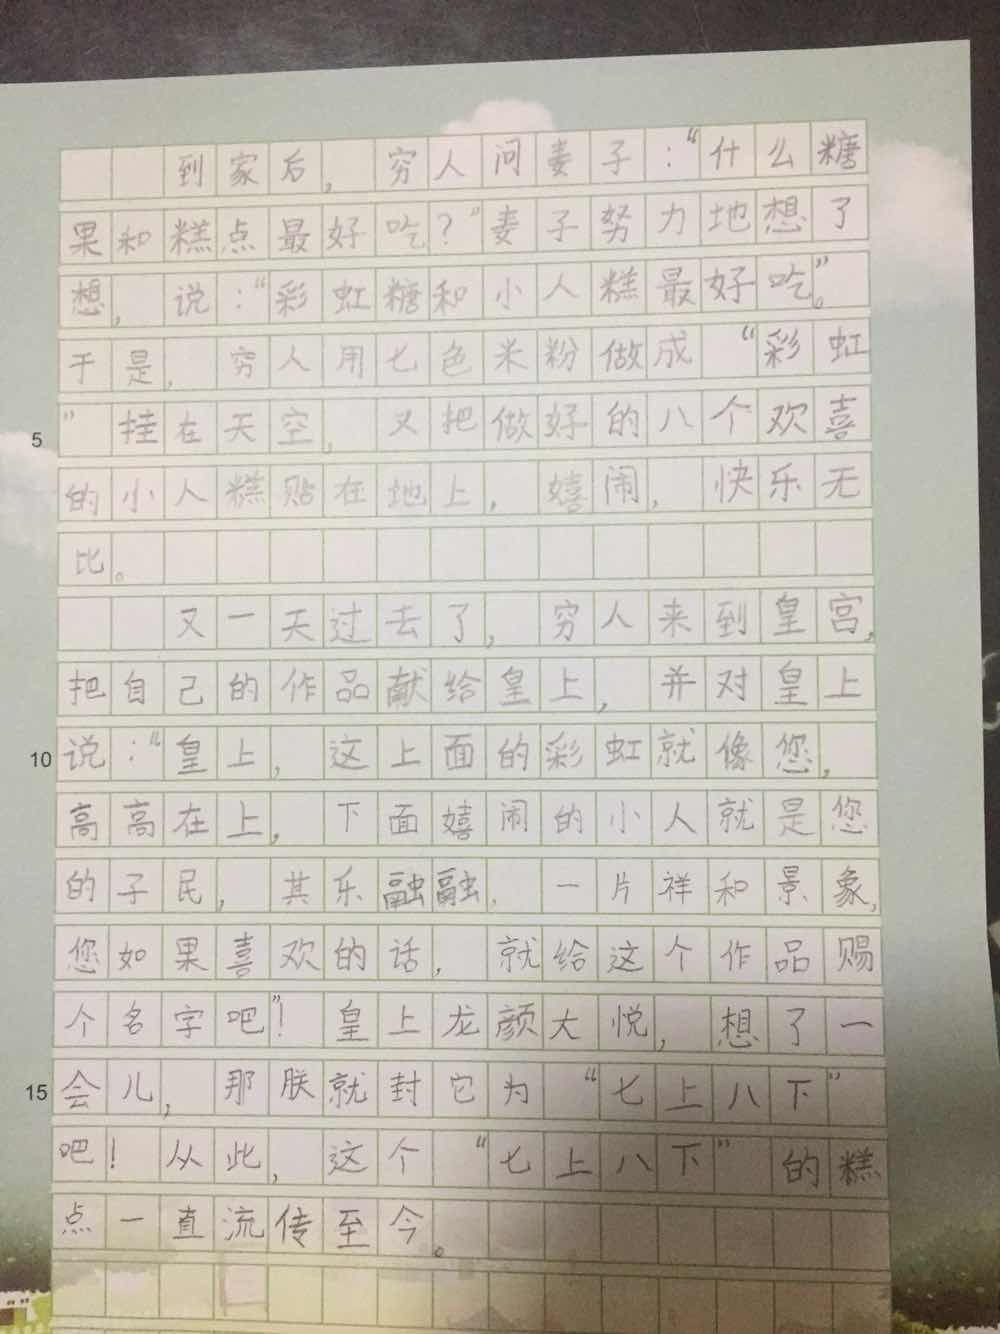 到家后，穷人问妻子：“什么糖
果和糕点最好吃？”妻子努力地想了
想，说：“彩虹糖和小人糕最好吃”。
于是，穷人用七色米粉做成“彩虹
”挂在天空，又把做好的八个欢喜
5
的小人糕贴在地上，嬉闹，快乐无
比。
又一天过去了，穷人来到皇宫，
把自己的作品献给皇上，并对皇上
说：“皇上，这上面的彩虹就像您，
10
高高在上，下面嬉闹的小人就是您
的子民，其乐融融，一片祥和景象，
您如果喜欢的话，就给这个作品赐
个名字吧”！皇上龙颜大悦，想了一
会儿，那朕就封它为“七上八下”
15
吧！从此，这个“七上八下”的糕
点一直流传至今。